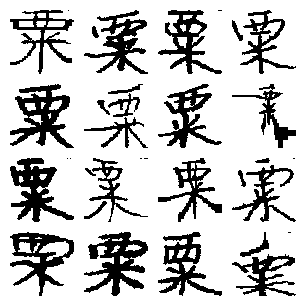 粟粟粟粟
粟粟粟粟
粟粟粟粟
粟粟粟粟